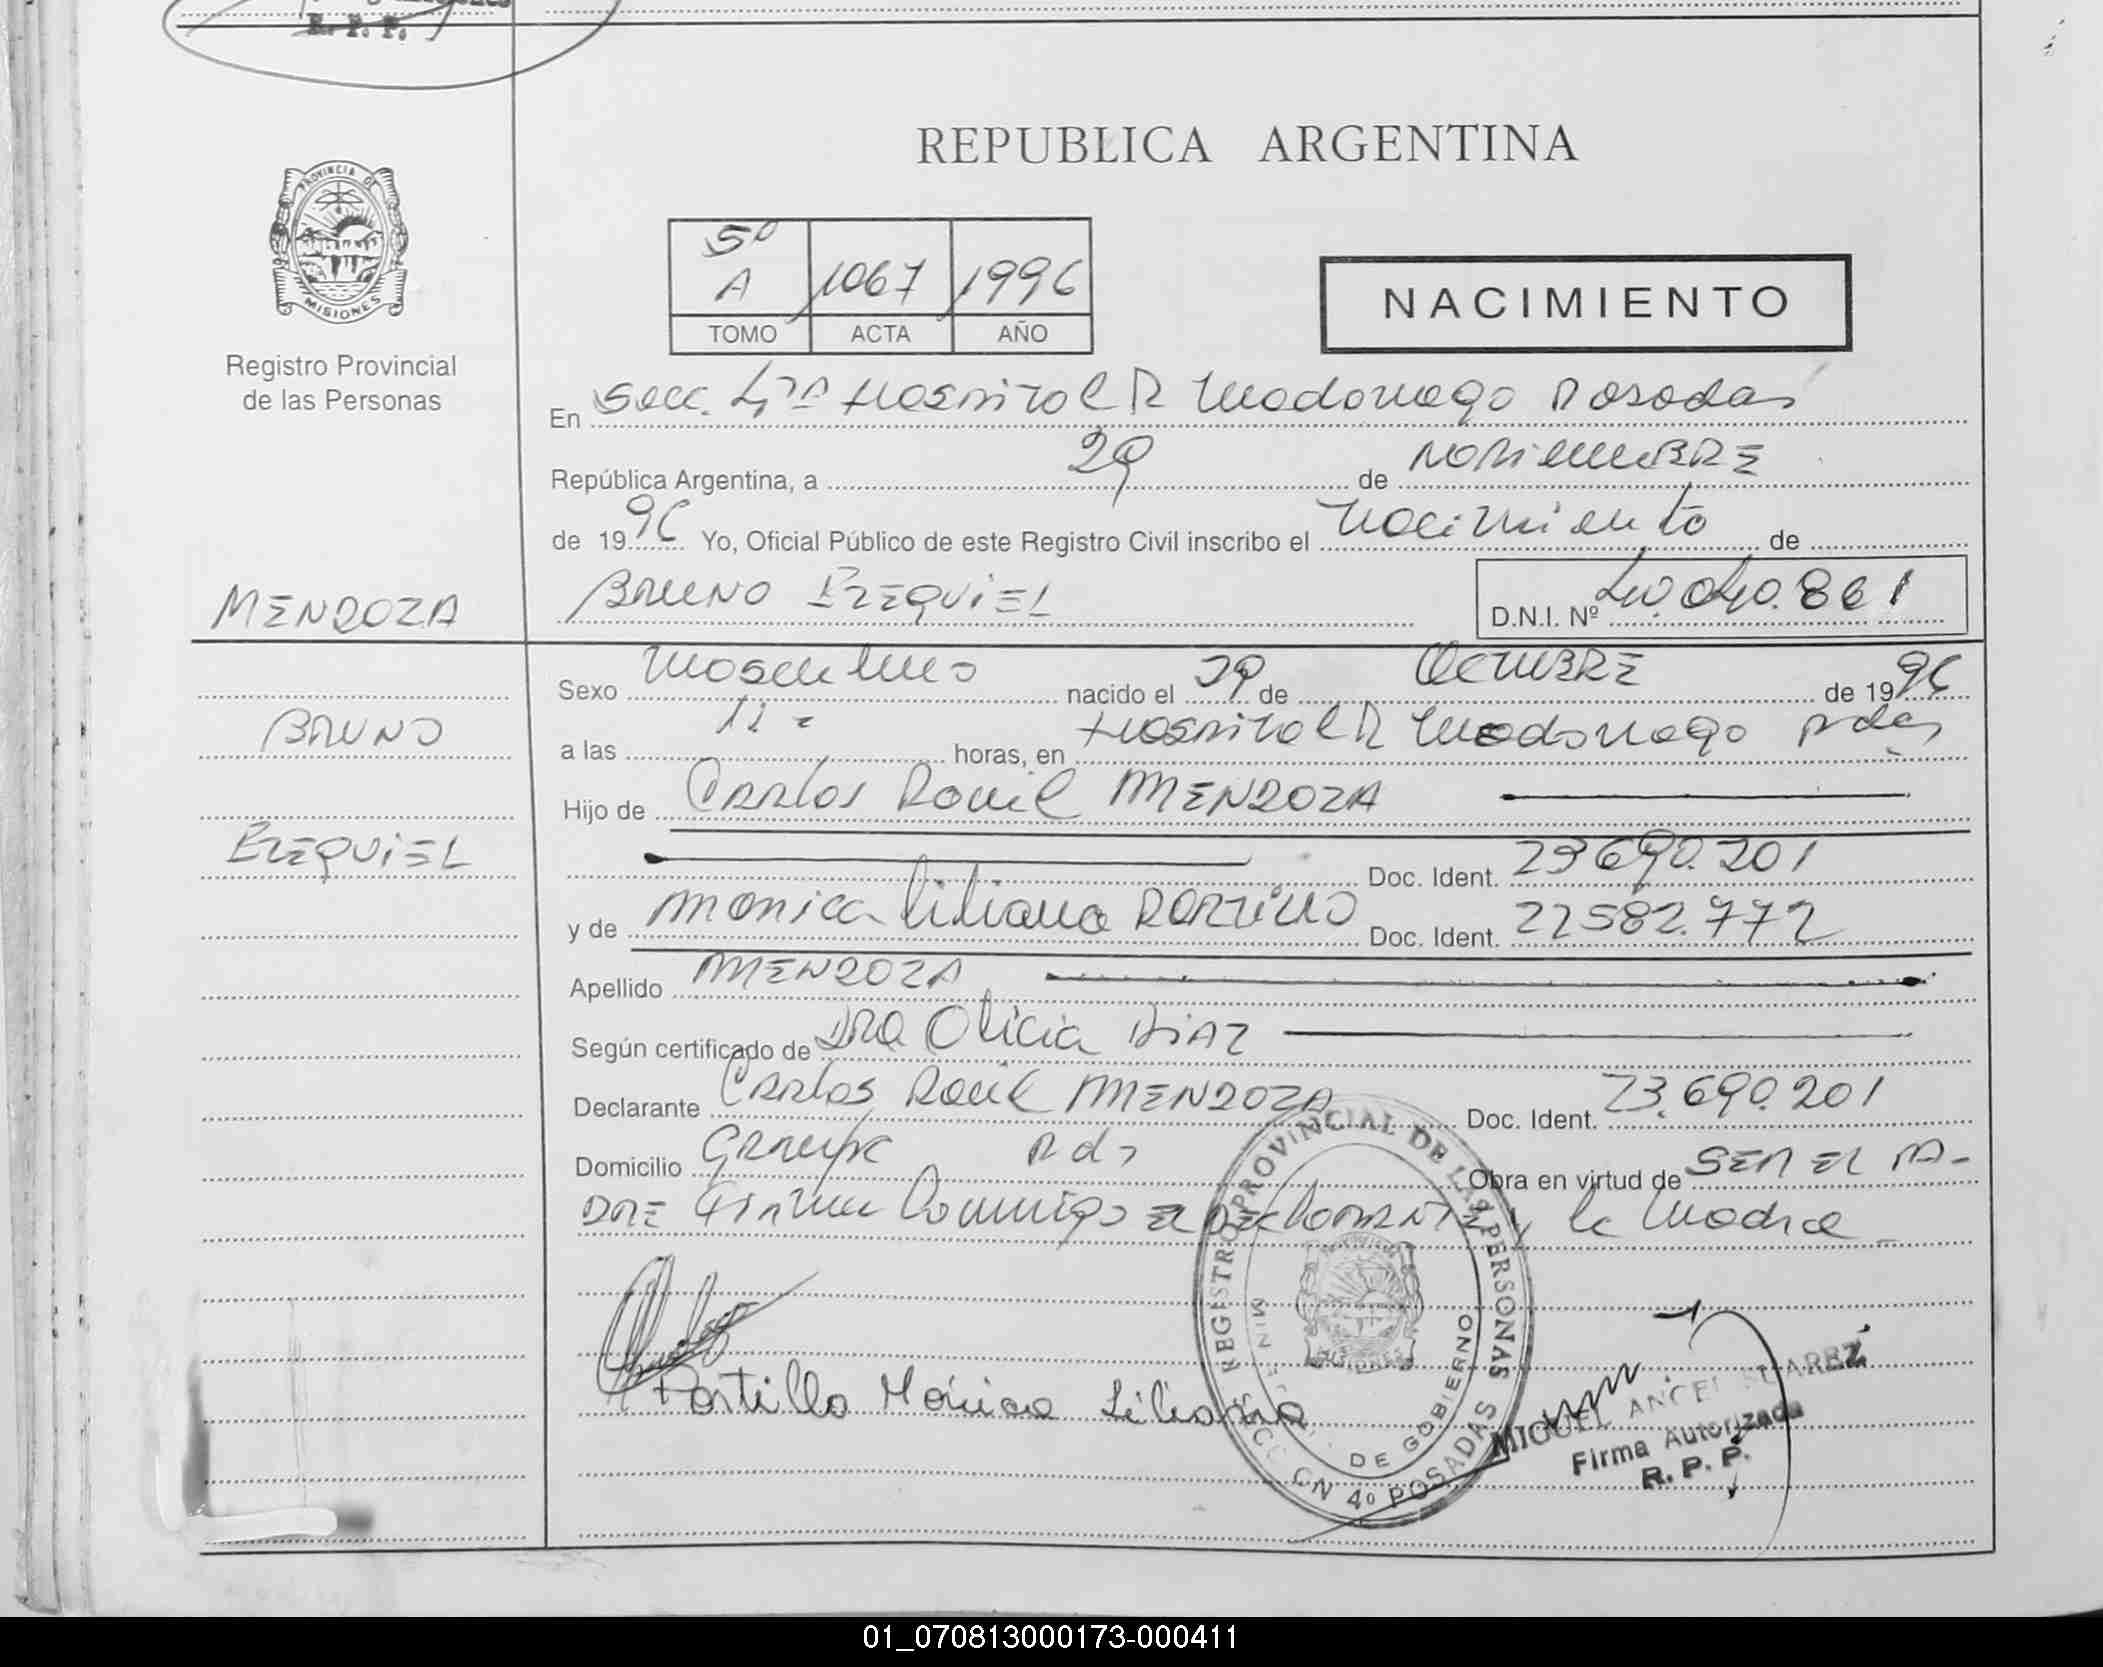 R. P. P.
REPUBLICA ARGENTINA
PROVINCIA DE
MISIONES
Registro Provincial
de las Personas
5º
A 1067 1996
TOMO ACTA AÑO
NACIMIENTO
En Secc. 4ta Hospital R Madariaga Posadas
República Argentina, a 29 de NOVIEMBRE
de 1996 Yo, Oficial Público de este Registro Civil inscribo el Nacimiento de
MENDOZA
BRUNO EZEQUIEL D.N.I. Nº 40.040.861
Sexo Masculino nacido el 29 de OCTUBRE de 1996
BRUNO
a las 11.- horas, en Hospital R Madariaga Pdas
Hijo de Carlos Raul MENDOZA
EZEQUIEL
Doc. Ident. 23690.201
y de Monica Liliana PORTILLO Doc. Ident. 22582.772
Apellido MENDOZA
Según certificado de Dra Alicia DIAZ
Declarante Carlos Raul MENDOZA Doc. Ident. 23.690.201
Domicilio Pds Obra en virtud de SER EL PA-
DRE Firma Conmigo el DEclaRANTE y la Madre
REGISTRO PROVINCIAL DE LAS PERSONAS
DE GOBIERNO
MISIONES
4º POSADAS
Portillo Mónica Liliana
MIGUEL ANGEL SUAREZ
Firma Autorizada
R. P. P.
01_070813000173-000411